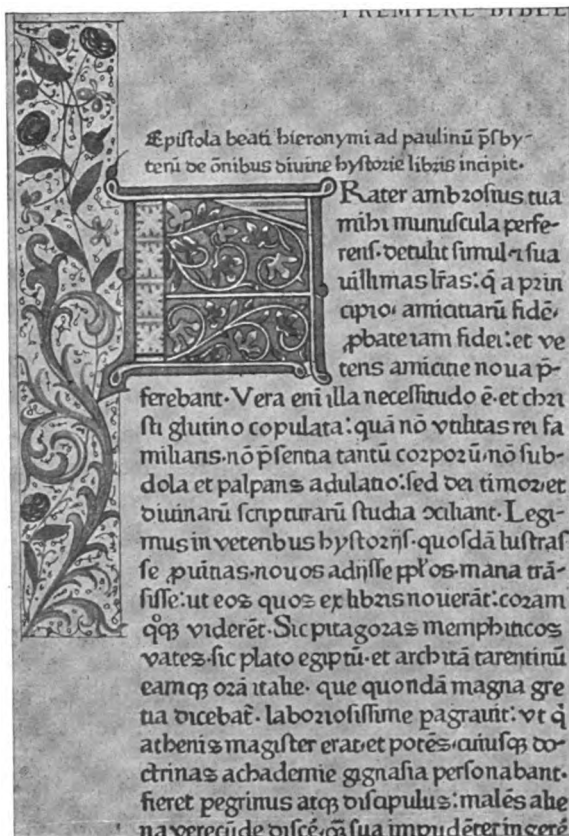 PREMIERE BIBLE
Epistola beati hieronymi ad paulinū p̄sby-
terū de ōnibus diuine hystorie libris incipit.
FRater ambrosius tua
mihi munuscula perfe-
rens. detulit simul ⁊ sua
uissimas lr̄as: q̄ a prin
cipio. amicitiarū fidē.
ꝓbate iam fidei: et ve
teris amicitie noua p̄-
ferebant. Vera eni illa necessitudo ē. et chri
sti glutino copulata: quā nō vtilitas rei fa
miliaris. nō p̄sentia tantū corporū. nō sub-
dola et palpans adulatio: sed dei timor. et
diuinarū scripturarū studia ↄciliant. Legi-
mus in veteribus hystorijs. quosdā lustras
se ꝓuīnas. nouos adijsse ppl̓os. maria trā-
sisse: ut eos quos ex libris nouerāt: coram
q̊qꝫ viderēt. Sic pitagoras memphiticos
vates. sic plato egiptū. et architā tarentinū
eamqꝫ orā italie. que quondā magna gre
tia dicebat̄. laboriosissime pagrauit: vt q̇
athenis magister erat. et potēs. cuiusqꝫ do-
ctrinas achademie gignasia personabant.
fieret pegrinus atqꝫ discipulus: malēs alie
na verecūde discē. q̄ꝫ sua impudēter ingerē